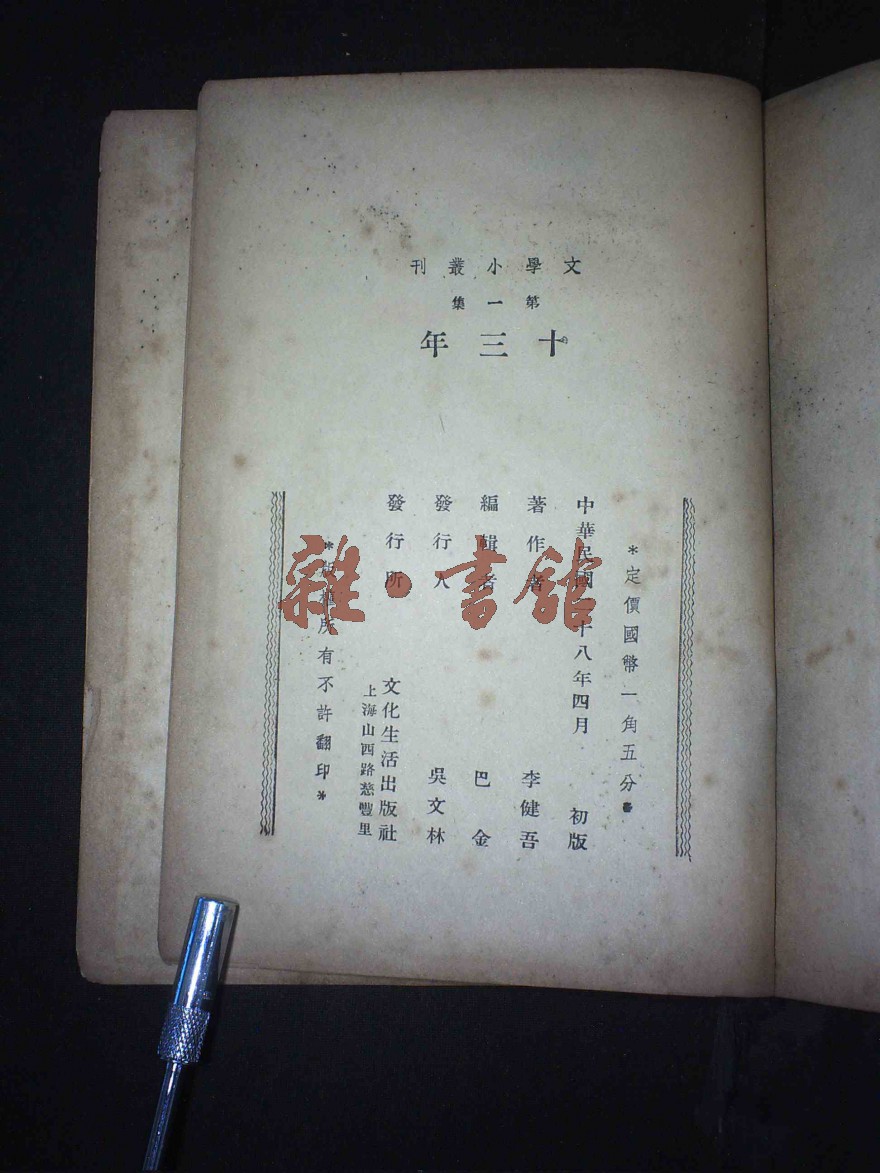 文學小叢刊
第一集
十三年
*定價國幣一角五分*
中華民國二十八年四月 初版
著作者 李健吾
編輯者 巴金
發行人 吳文林
發行所 文化生活出版社
上海山西路慈豐里
*版權所有不許翻印*
雜·書館